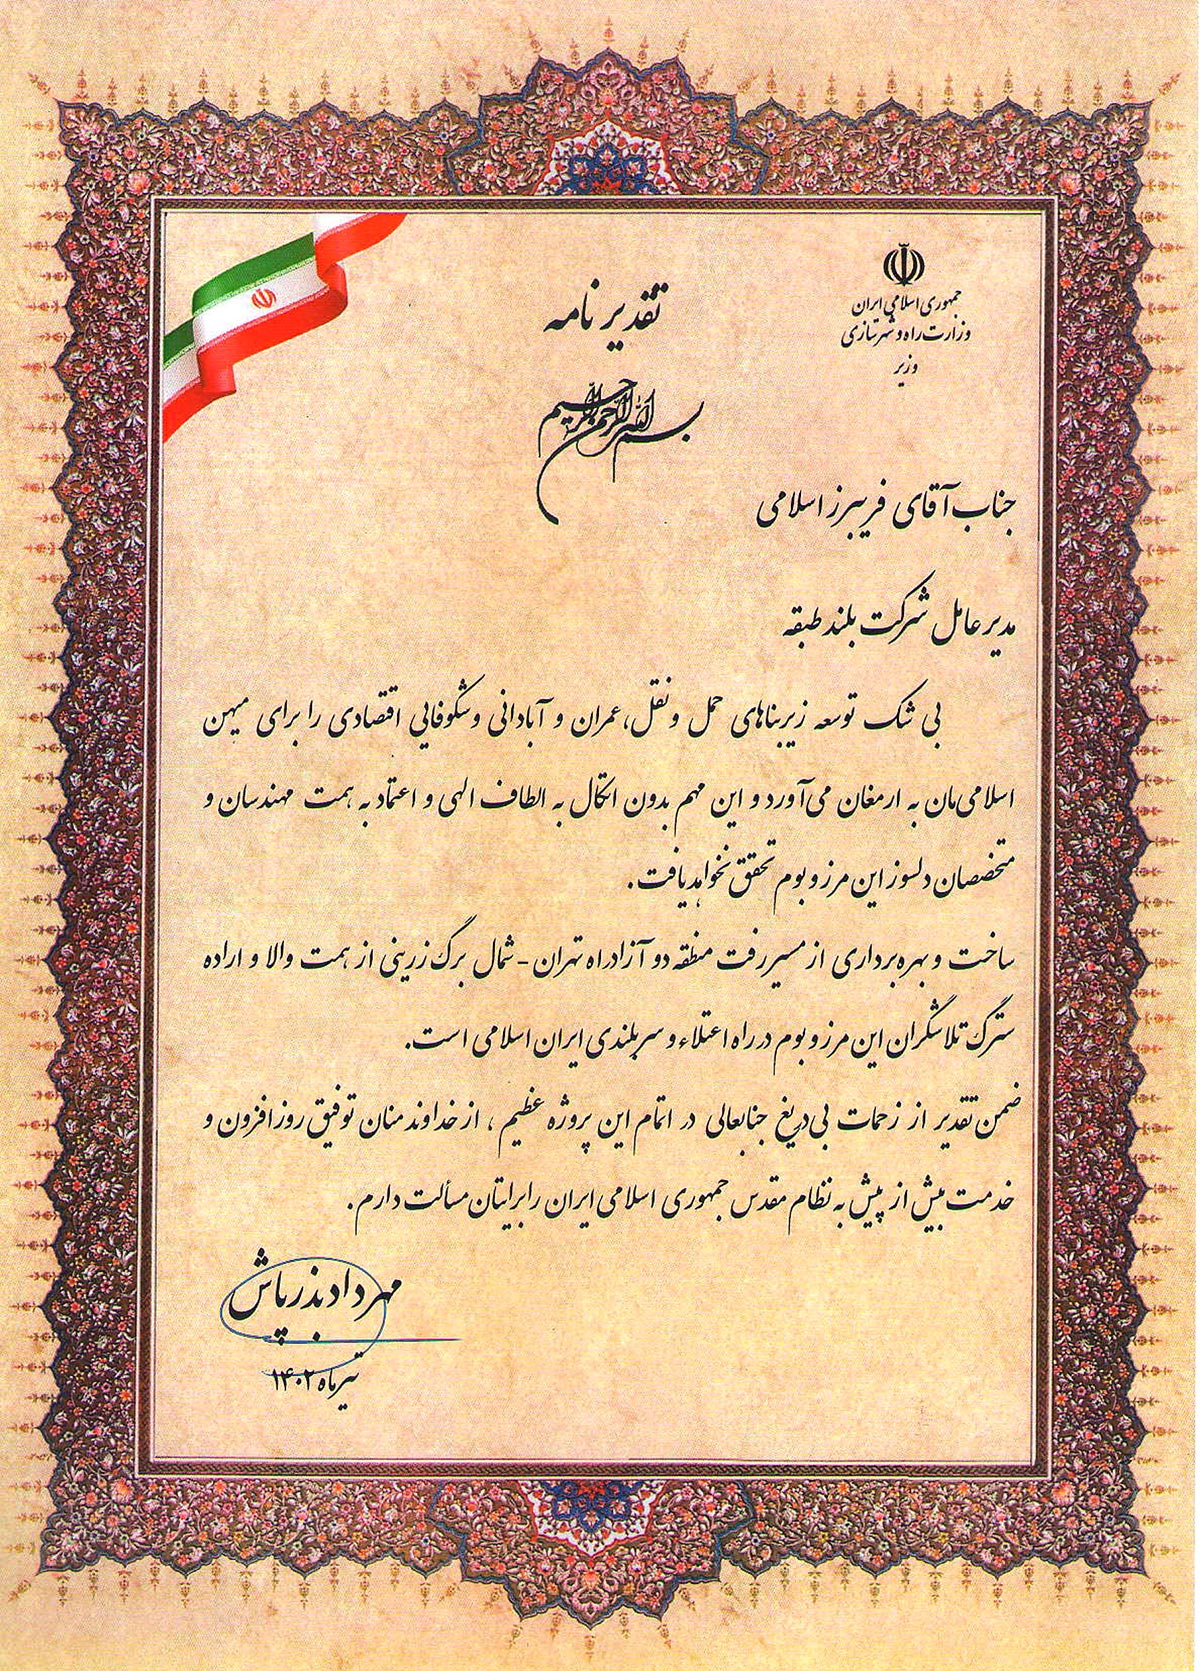 جمهوری اسلامی ایران
وزارت راه و شهرسازی
وزیر
تقدیر نامه
بسم الله الرحمن الرحیم
جناب آقای فریبرز اسلامی
مدیر عامل شرکت بلند طبقه
بی شک توسعه زیربناهای حمل و نقل، عمران و آبادانی و شکوفایی اقتصادی را برای میهن
اسلامی‌مان به ارمغان می‌آورد و این مهم بدون اتکال به الطاف الهی و اعتماد به همت مهندسان و
متخصصان دلسوز این مرز و بوم تحقق نخواهد یافت.
ساخت و بهره‌برداری از مسیر رفت منطقه دو آزادراه تهران - شمال برگ زرینی از همت والا و اراده
سترگ تلاشگران این مرز و بوم در راه اعتلاء و سربلندی ایران اسلامی است.
ضمن تقدیر از زحمات بی‌دریغ جنابعالی در اتمام این پروژه عظیم، از خداوند منان توفیق روزافزون و
خدمت بیش از پیش به نظام مقدس جمهوری اسلامی ایران را برایتان مسألت دارم.
مهرداد بذرپاش
تیرماه ۱۴۰۲